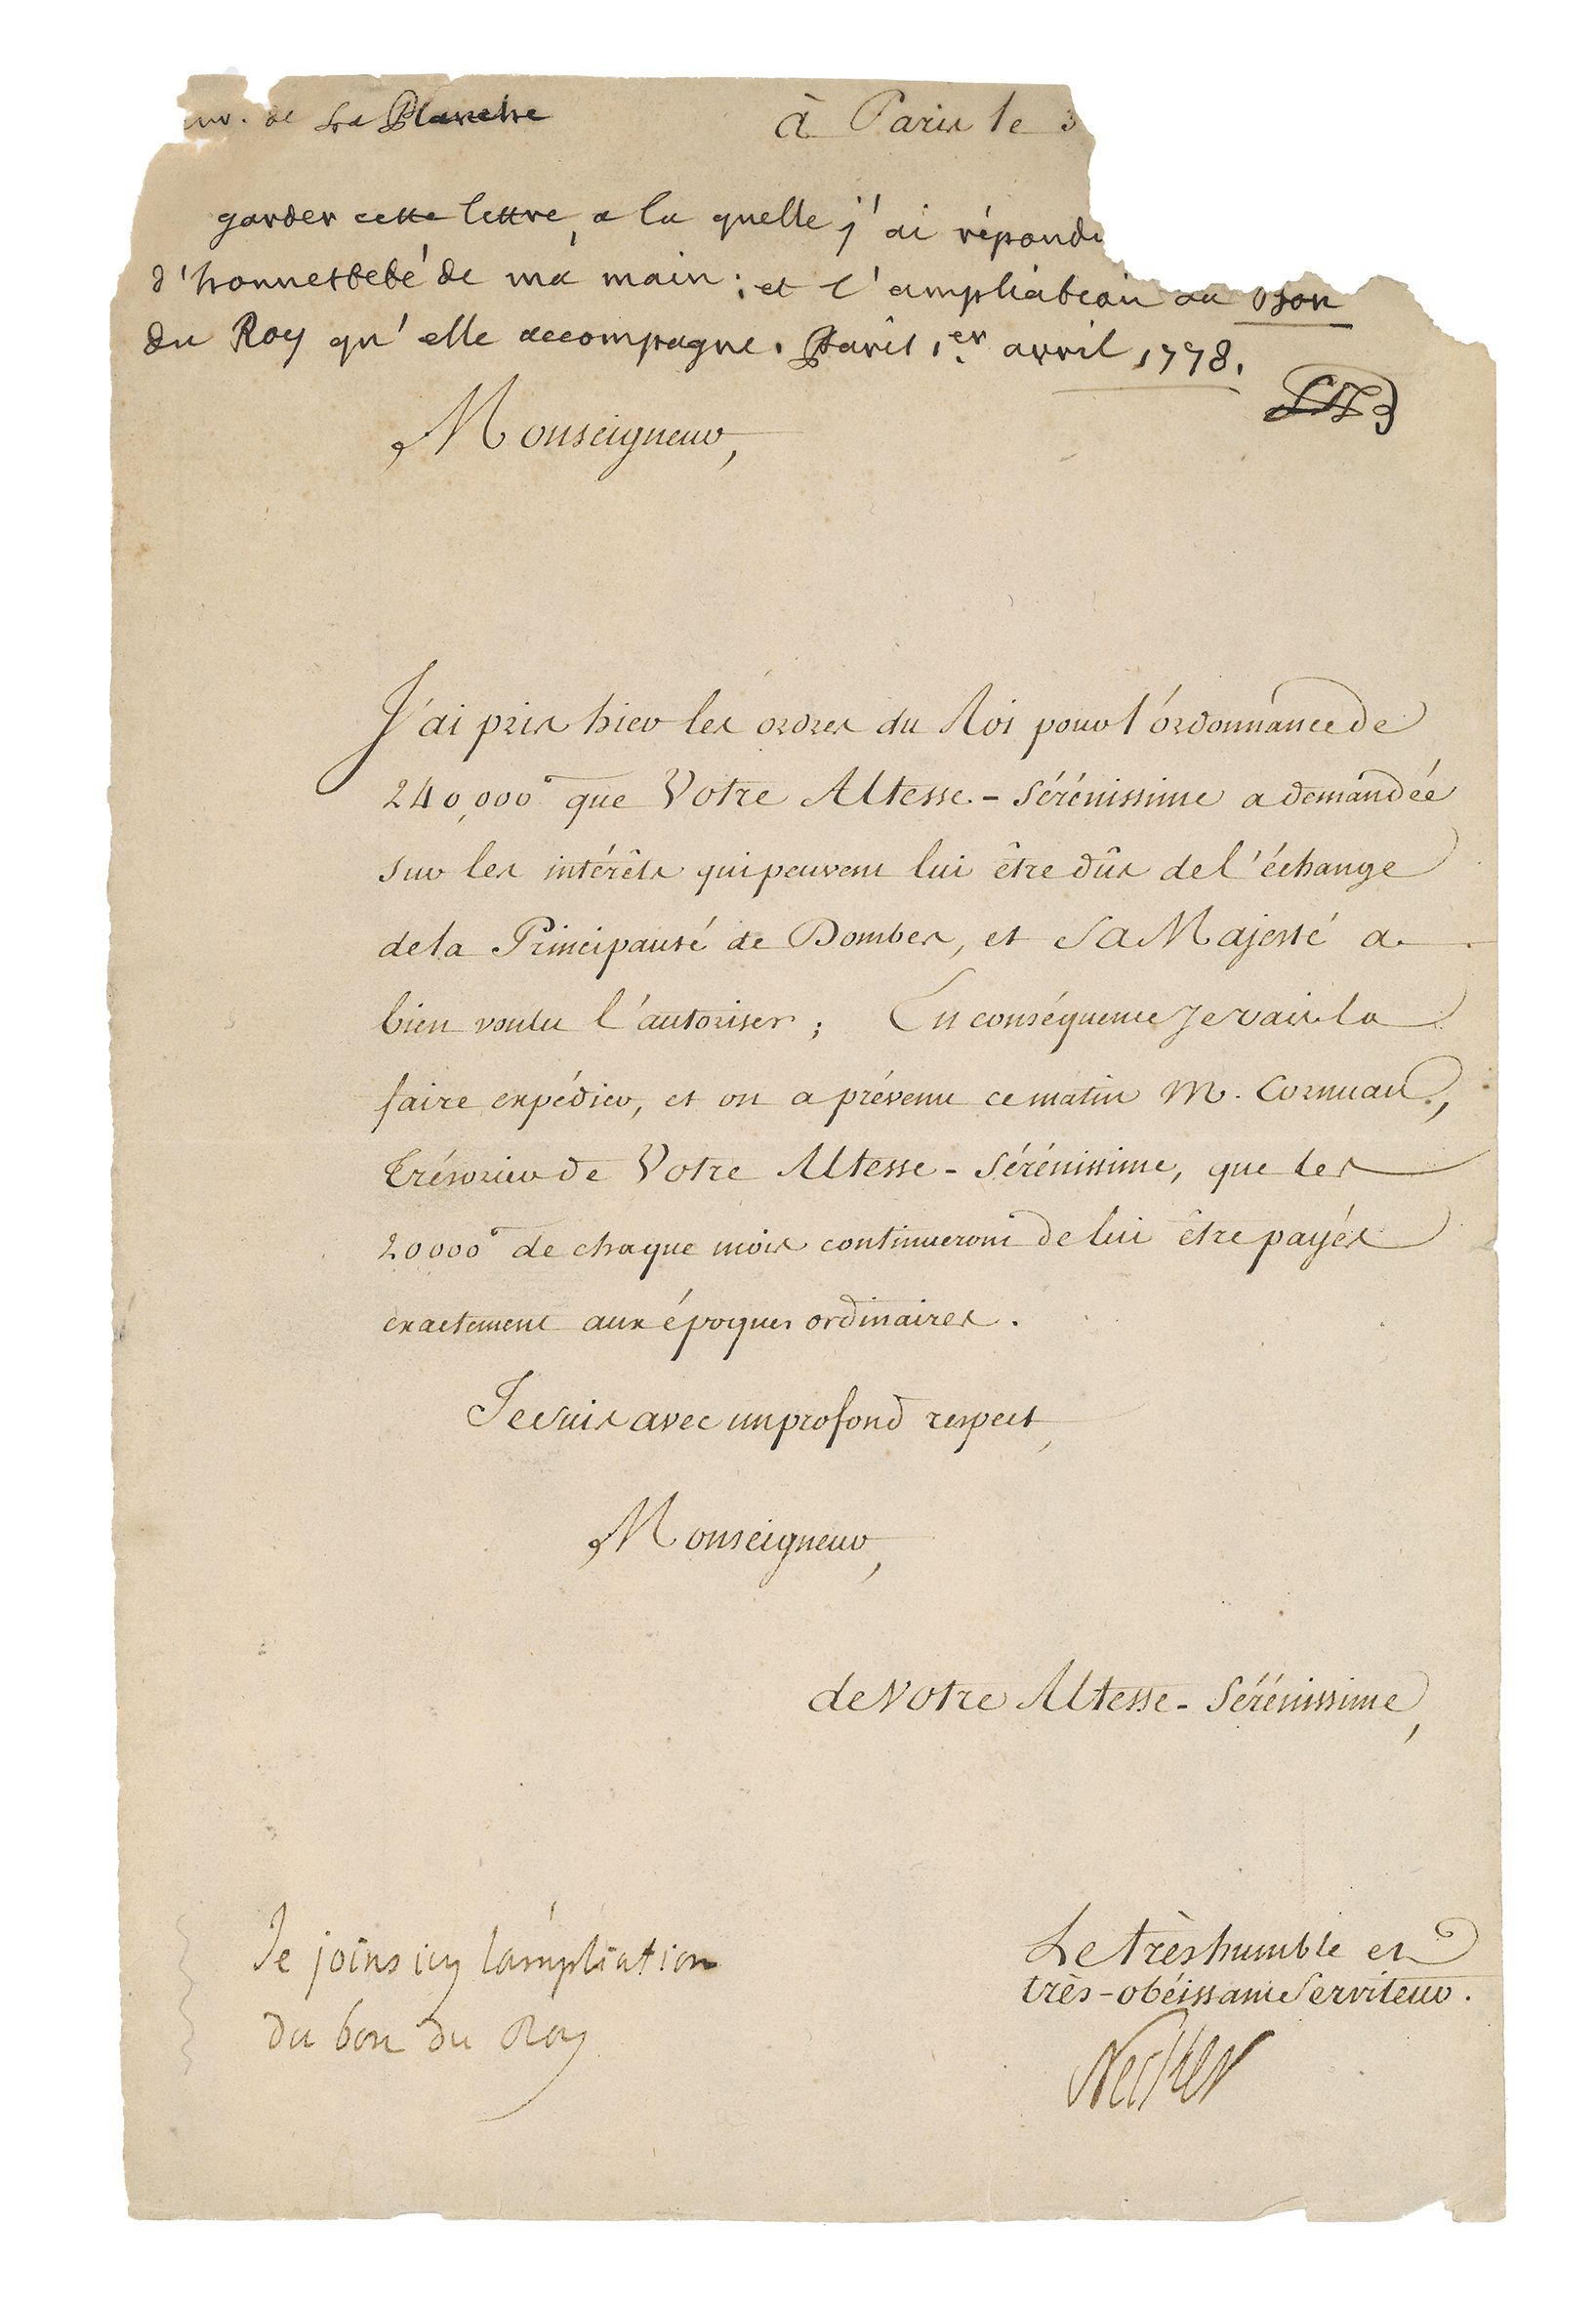 de La Planche
à Paris le 3
garder cette lettre, a la quelle j'ai répondu
d'honnesteté de ma main; et l'ampliation du bon
du Roy qu'elle accompagne. Paris 1.er avril 1778.
Monseigneur,
J'ai pris hier les ordres du Roi pour l'ordonnance de
240,000.tt que Votre Altesse-Sérénissime a demandée
sur les intérêts qui peuvent lui être dûs de l'échange
de la Principauté de Dombes, et Sa Majesté a
bien voulu l'autoriser; En conséquence je vais la
faire expédier, et on a prévenu ce matin M. Cornuau,
Trésorier de Votre Altesse-Sérénissime, que les
20000.tt de chaque mois continueront de lui être payés
exactement aux époques ordinaires.
Je suis avec un profond respect,
Monseigneur,
de Votre Altesse-Sérénissime,
Le très humble et
très-obéissant Serviteur.
Necker
Je joins icy l'ampliation
du bon du Roy